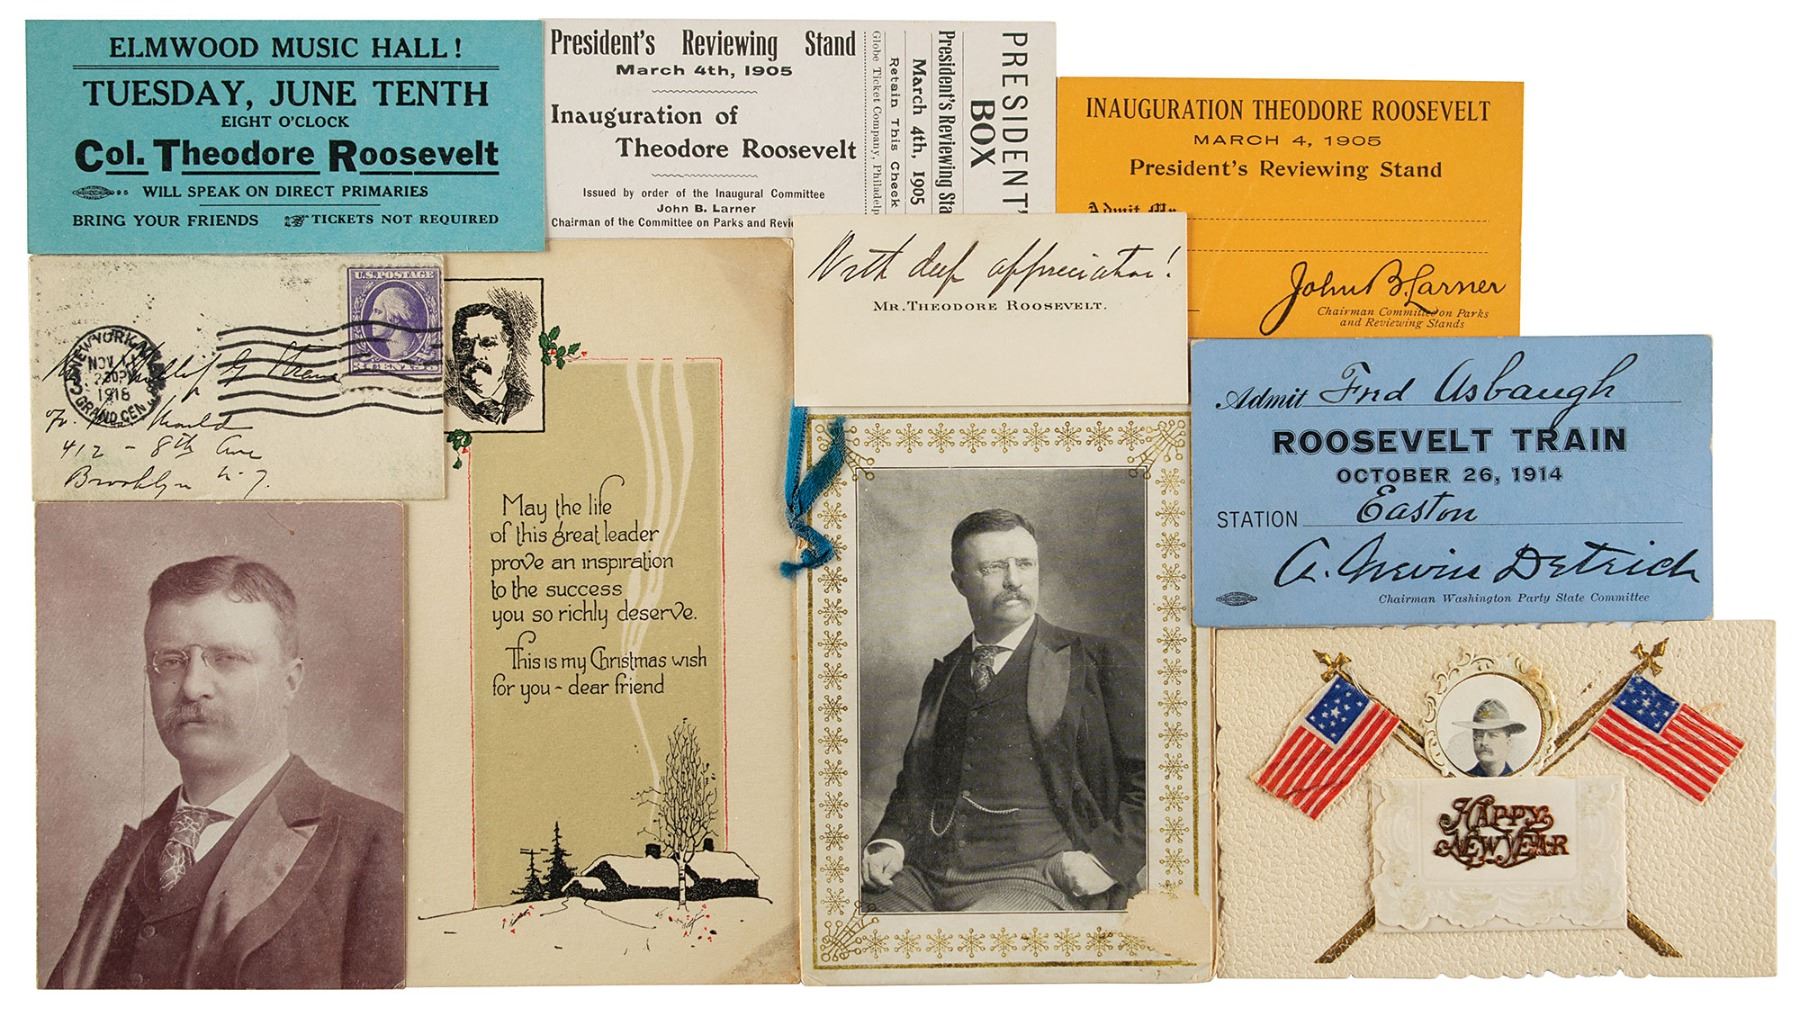 ELMWOOD MUSIC HALL!
TUESDAY, JUNE TENTH
EIGHT O'CLOCK
Col. Theodore Roosevelt
WILL SPEAK ON DIRECT PRIMARIES
BRING YOUR FRIENDS TICKETS NOT REQUIRED
President's Reviewing Stand
March 4th, 1905
Inauguration of
Theodore Roosevelt
Issued by order of the Inaugural Committee
John B. Larner
Chairman of the Committee on Parks and Revie
Globe Ticket Company, Philadelp
Retain This Check
March 4th, 1905
President's Reviewing Sta
PRESIDENT'
BOX
INAUGURATION THEODORE ROOSEVELT
MARCH 4, 1905
President's Reviewing Stand
Admit Mr.
John B. Larner
Chairman Committee on Parks
and Reviewing Stands
With deep appreciation!
MR. THEODORE ROOSEVELT.
U.S. POSTAGE
3 CENTS 3
NEW YORK, N.Y.
NOV 11
230PM
1918
GRAND CEN. S
412 - 8th Ave
Brooklyn N.Y.
May the life
of this great leader
prove an inspiration
to the success
you so richly deserve.
This is my Christmas wish
for you ~ dear friend
Admit Fred Asbaugh
ROOSEVELT TRAIN
OCTOBER 26, 1914
STATION Easton
A. Nevin Detrich
Chairman Washington Party State Committee
HAPPY
NEW YEAR